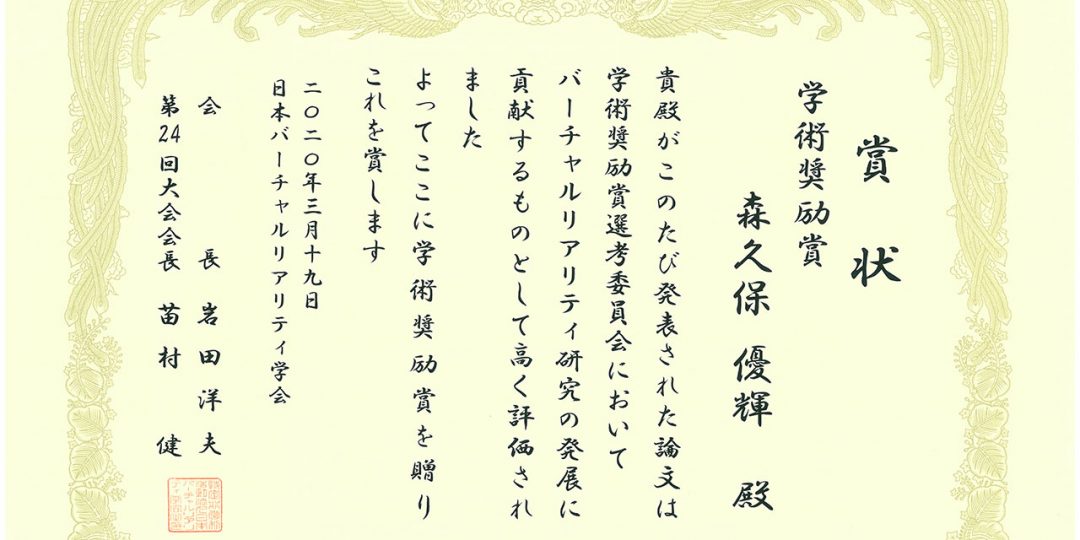 賞状
学術奨励賞
森久保 優輝 殿
貴殿がこのたび発表された論文は
学術奨励賞選考委員会において
バーチャルリアリティ研究の発展に
貢献するものとして高く評価され
ました
よってここに学術奨励賞を贈り
これを賞します
二〇二〇年三月十九日
日本バーチャルリアリティ学会
会長 岩田洋夫
第24回大会会長 苗村 健